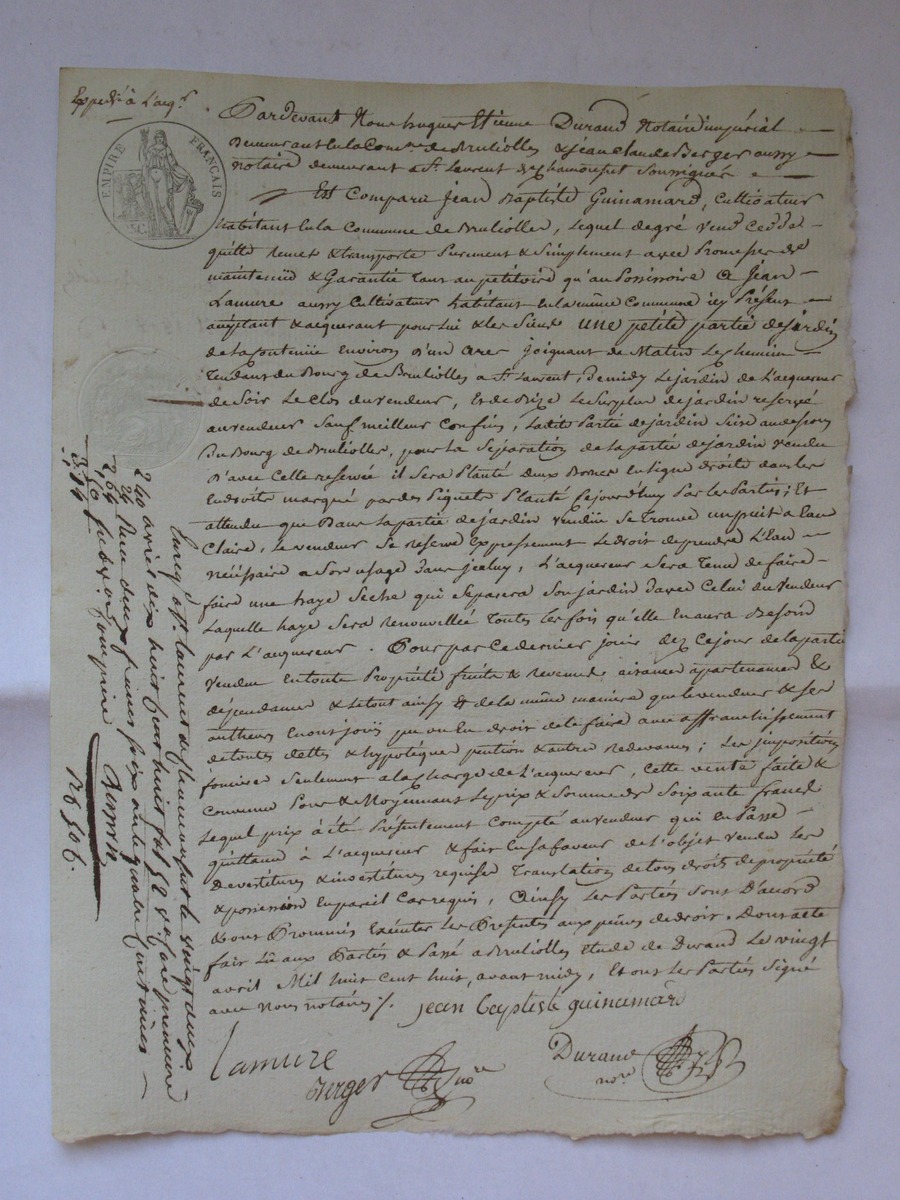 Expedié à L'acqr
EMPIRE FRANÇAIS
75 C.
Pardevant Nous hugues Etienne Durand Notaire impérial
Demeurant en la Comne de Brulliolles & Jean Claude Berger aussy
notaire demeurant a St Laurent de Chamousset Soussignés
Est Comparu Jean Baptiste Guinamard, Cultivateur
habitant en la Commune de Brulliolles, Lequel de gré vend cedde
quitte remet & transporte Purement & Simplement avec Promesse de
maintenüe & Garantie tant au petitoire qu'au Possessoire a Jean
Lamure aussy Cultivateur habitant en la même Commune icy Présent
acceptant & acquerant pour Lui & les Siens une petite partie de jardin
de la Contenüe environ d'un are, joignant de Matin Le Chemin
Tendant du Bourg de Brulliolles a St Laurent, De midy Le jardin de L'acquereur
de Soir Le Clos du vendeur, Et de Bize Le Surplus de jardin reservé
au vendeur Sauf meilleur Confins, Ladite Partie de jardin Sise au dessous
Du Bourg de Brulliolles, pour La Séparation de La partie de jardin vendu
D'avec Celle reservée il Sera Planté deux Bornes en ligne droite dans les
Endroits marqué par des Piquets Planté Cejourd'huy Par les Parties; Et
attendu que Dans La partie de jardin vendüe Se trouve un puit a Eau
Claire, Le vendeur Se reserve Expressement Le droit de prendre L'Eau
nécéssaire a Son usage Dans jceluy, L'acquereur Sera Tenu de faire
faire une haye Seche qui Séparera Son jardin D'avec Celui du Vendeur
Laquelle haye Sera Renouvellée Toutes les fois qu'elle En aura Besoin
par L'acquereur. Pour par Ce dernier jouir dez Ce jour de La partie
vendue En toute Propriété fruits & Revenus aisances apartenances &
dépendances & le tout ainsy & de la même maniere que le vendeur & Ses
autheurs En ont joüi pu ou En droit de le faire avec affranchissement
de toutes dettes & hypotéque pention & autres redevances; Les jmpositions
foncière Seulement a la Charge de L'acquereur, Cette vente faite &
Convenue Pour & Moyennant Le prix & Somme de Soixante francs
Lequel prix à été Présentement Compté au vendeur qui En Passe
quittance à L'acquereur & fait En Sa faveur de L'objet vendu Les
Devestitures & investitures requises Translation de tous droits de propriété
& possession En pareil Cas requis, Ainsy Les Parties Sont D'accord
& ont Promis Exécuter Les Présentes aux peines de droit. Dont acte
fait Lû aux Parties & Passé a Brulliolles Etude de Durand Le vingt
avril Mil huit Cent huit, avant midy, Et ont Les Parties Signé
avec Nous notaires /.
jean baptiste guinamard
Lamure
Berger nore
Durand
nore
Enregé à St Laurent de Chamousset le vingt deux
avril dix huit cent huit fol 52 Vo Case première
Reçu deux francs soixante quatre Centimes
2 40
24
2,64
50
3,14
26 506.